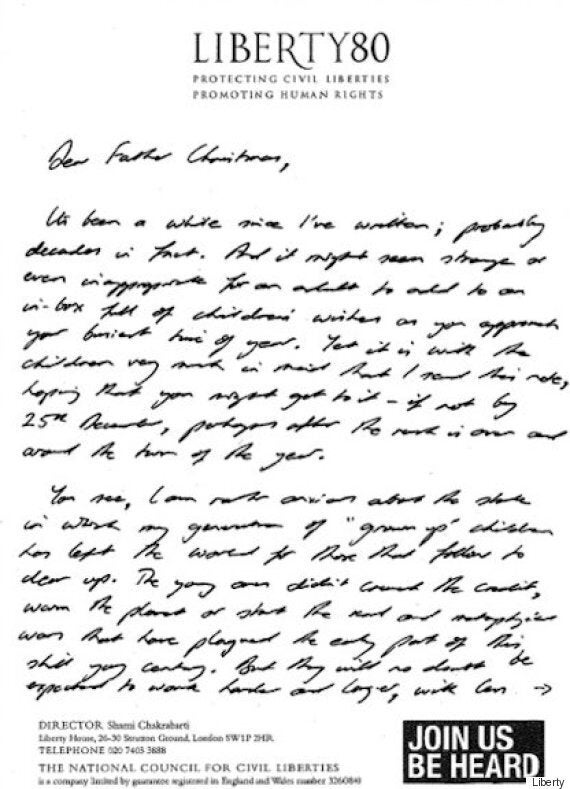 LIBERTY80
PROTECTING CIVIL LIBERTIES
PROMOTING HUMAN RIGHTS
Dear Father Christmas,
It's been a while since I've written; probably
decades in fact. And it might seem strange or
even inappropriate for an adult to add to an
in-box full of children's wishes as you approach
your busiest time of year. Yet it is with the
children very much in mind that I send this note,
hoping that you might get to it - if not by
25th December, perhaps after the rush is over and
around the turn of the year.
You see, I am rather anxious about the state
in which my generation of "grown up" children
has left the world for those that follow to
clear up. The young ones didn't crunch the credit,
warm the planet or start the real and metaphysical
wars that have plagued the early part of this
still young century. But they will no doubt be
expected to work harder and longer, with less →
DIRECTOR Shami Chakrabarti
Liberty House, 26-30 Strutton Ground, London SW1P 2HR
TELEPHONE 020 7403 3888
THE NATIONAL COUNCIL FOR CIVIL LIBERTIES
is a company limited by guarantee registered in England and Wales number 3260840
JOIN US
BE HEARD
Liberty